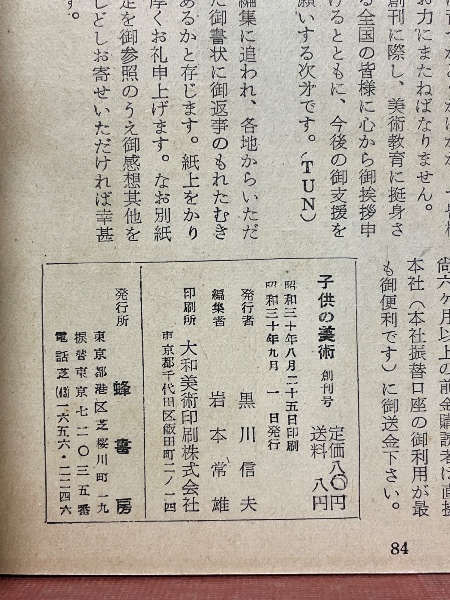 お力にまたねばなりません。
創刊に際し、美術教育に挺身さ
る全国の皆様に心から御挨拶申
けるとともに、今後の御支援を
願いする次才です。（TUN）
編集に追われ、各地からいただ
た御書状に御返事のもれたむき
あるかと存じます。紙上をかり
厚くお礼申上げます。なお別紙
定を御参照のうえ御感想其他を
しどしお寄せいただければ幸甚
す。
尚六ヶ月以上の前金購読者は直接
本社（本社振替口座の御利用が最
も御便利です）に御送金下さい。
子供の美術 創刊号
定価八〇円
送料 八円
昭和三十年八月二十五日印刷
昭和三十年九月 一日発行
発行者 黒川信夫
編集者 岩本常雄
印刷所 大和美術印刷株式会社
東京都千代田区飯田町二ノ一四
発行所 蜂書房
東京都港区芝桜川町一九
振替東京七二〇三五番
電話芝(43)一六五六・二二四六
84